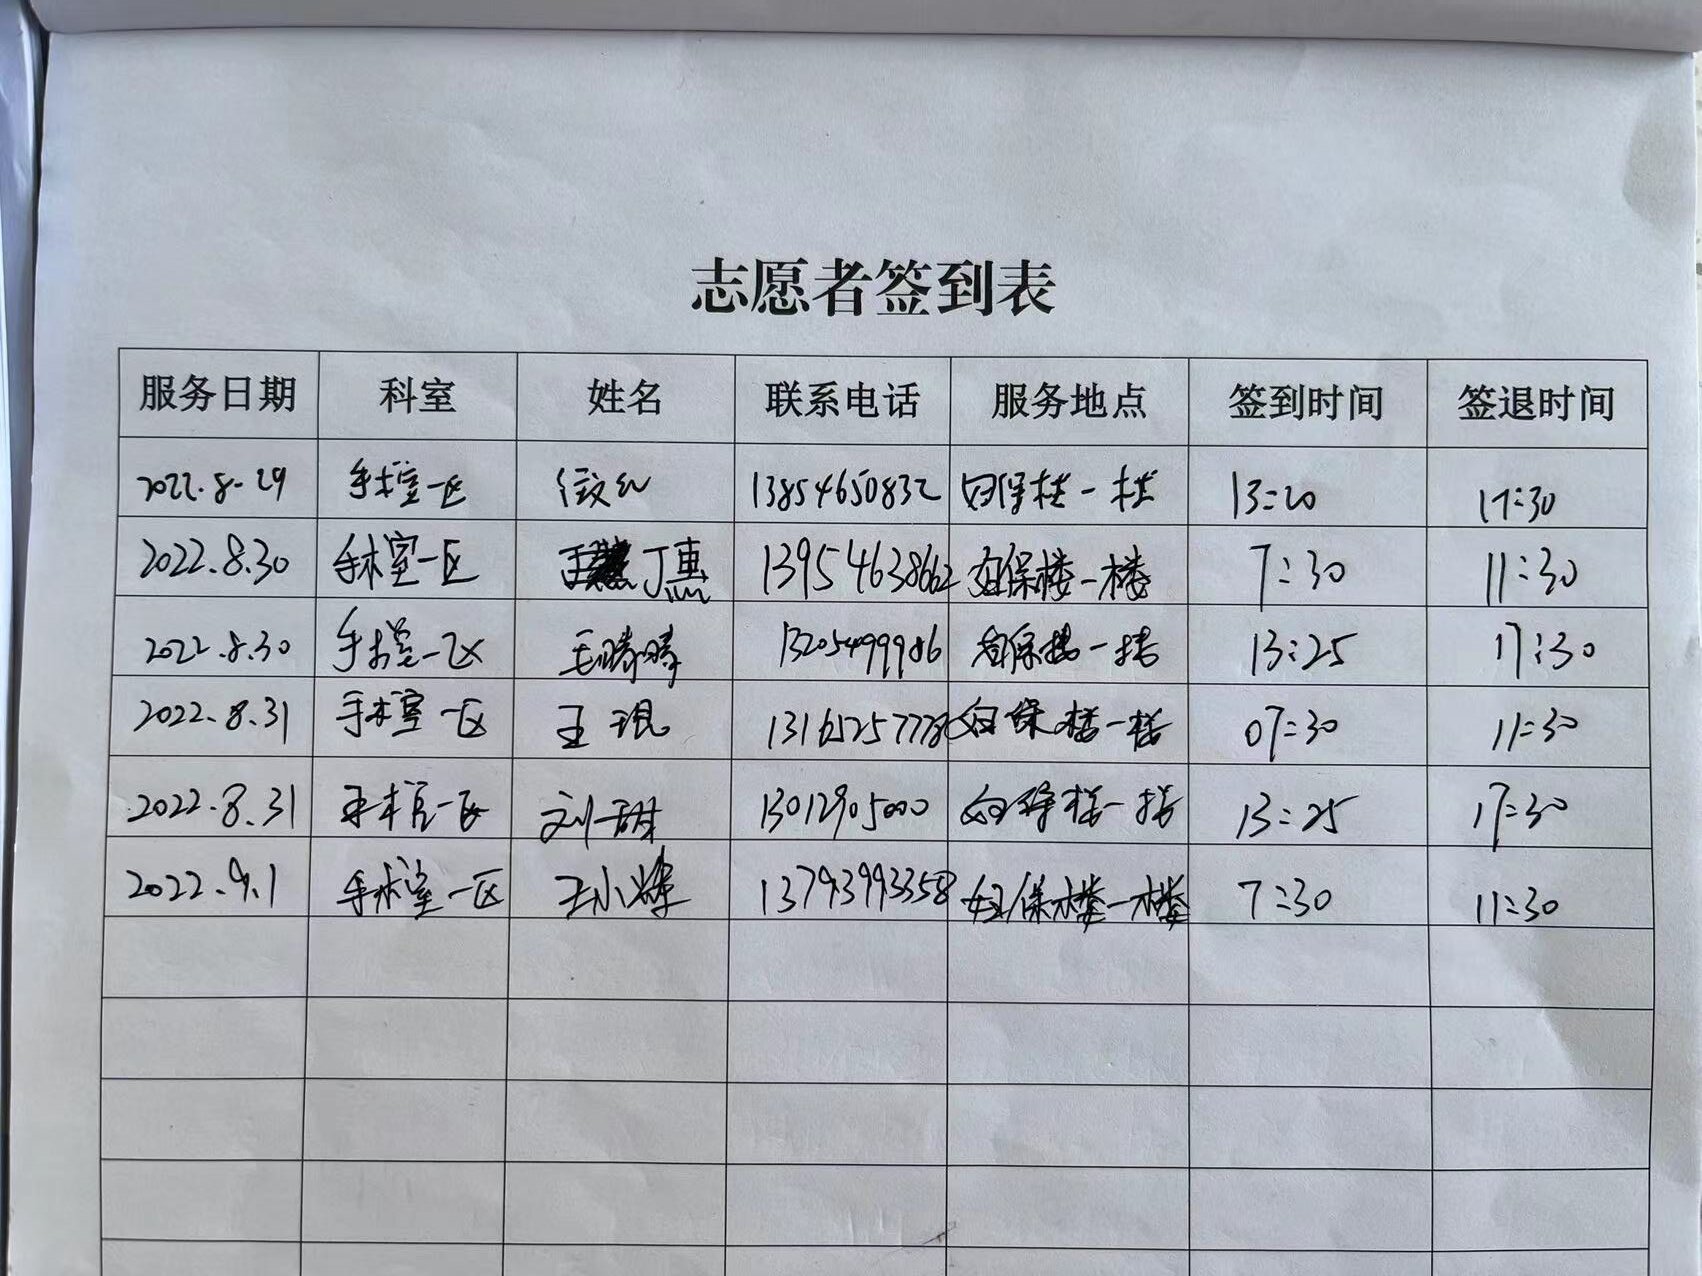 志愿者签到表
服务日期 科室 姓名 联系电话 服务地点 签到时间 签退时间
2022.8.29 手术室一区 13854650832 妇保楼一楼 13:20 17:30
2022.8.30 手术室一区 丁惠 13954638662 妇保楼一楼 7:30 11:30
2022.8.30 手术室一区 毛晴晴 13205499986 妇保楼一楼 13:25 17:30
2022.8.31 手术室一区 王琨 妇保楼一楼 07:30 11:30
2022.8.31 手术室一区 刘甜 13012905000 妇保楼一楼 13:25 17:30
2022.9.1 手术室一区 王小 13793993358 妇保楼一楼 7:30 11:30